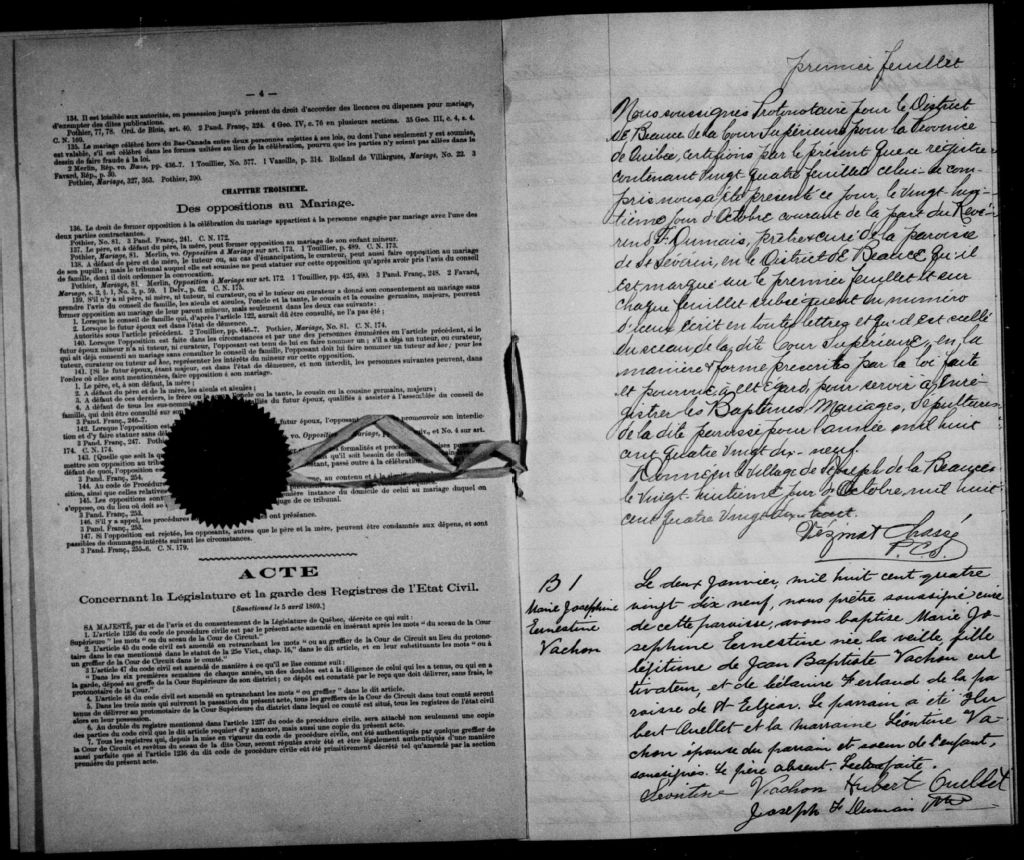 — 4 —
134. Il est loisible aux autorités, en possession jusqu'à présent du droit d'accorder des licences ou dispenses pour mariage,
d'exempter des dites publications.
Pothier, 77, 78. Ord. de Blois, art. 40. 2 Pand. Franç., 324. 4 Geo. IV, c. 76 en plusieurs sections. 35 Geo. III, c. 4, s. 4.
C. N. 169.
135. Le mariage célébré hors du Bas-Canada entre deux personnes sujettes à ses lois, ou dont l'une seulement y est soumise,
est valable, s'il est célébré dans les formes usitées au lieu de la célébration, pourvu que les parties n'y soient pas allées dans le
dessin de faire fraude à la loi.
2 Merlin, Rép. vo. Bans, pp. 436-7. 1 Touillier, No. 577. 1 Vazeille, p. 314. Rolland de Villargues, Mariage, No. 22. 3
Favard, Rép., p. 30.
Pothier, Mariage, 327, 363. Pothier, 390.
CHAPITRE TROISIEME.
Des oppositions au Mariage.
136. Le droit de former opposition à la célébration du mariage appartient à la personne engagée par mariage avec l'une des
deux parties contractantes.
Pothier, No. 81. 3 Pand. Franç., 241. C. N. 172.
137. Le père, et à défaut du père, la mère, peut former opposition au mariage de son enfant mineur.
Pothier, Mariage, 81. Merlin, vo. Opposition à Mariage sur art. 173. 1 Touillier, p. 489. C. N. 173.
138. A défaut de père et de mère, le tuteur ou, au cas d'émancipation, le curateur, peut aussi faire opposition au mariage
de son pupille; mais le tribunal auquel elle est soumise ne peut statuer sur cette opposition qu'après avoir pris l'avis du conseil
de famille, dont il doit ordonner la convocation.
Pothier, Mariage, 81. Merlin, Opposition à Mariage sur art. 173. 1 Touillier, pp. 425, 490. 3 Pand. Franç., 248. 2 Favard,
Mariage, s. 2, § 1, No. 3, p. 59. 1 Delv., p. 62. C. N. 175.
139. S'il n'y a ni père, ni mère, ni tuteur, ni curateur, ou si le tuteur ou curateur a donné son consentement au mariage sans
prendre l'avis du conseil de famille, les aïeuls et aïeules, l'oncle et la tante, le cousin et la cousine germains, majeurs, peuvent
former opposition au mariage de leur parent mineur, mais seulement dans les deux cas suivants:
1. Lorsque le conseil de famille qui, d'après l'article 122, aurait dû être consulté, ne l'a pas été;
2. Lorsque le futur époux est dans l'état de démence.
Autorités sous l'article précédent. 2 Touillier, pp. 446-7. Pothier, Mariage, No. 81. C. N. 174.
140. Lorsque l'opposition est faite dans les circonstances et par une des personnes énumérées en l'article précédent, si le
futur époux mineur n'a ni tuteur, ni curateur, l'opposant est tenu de lui en faire nommer un; s'il a déjà un tuteur, ou curateur,
qui ait déjà consenti au mariage sans consulter le conseil de famille, l'opposant doit lui faire nommer un tuteur ad hoc; pour les
tuteur, curateur ou tuteur ad hoc, représenter les intérêts du mineur sur cette opposition.
141. [Si le futur époux, étant majeur, est dans l'état de démence, et non interdit, les personnes suivantes peuvent, dans
l'ordre où elles sont mentionnées, faire opposition à son mariage.
1. Le père, et, à son défaut, la mère;
2. A défaut du père et de la mère, les aïeuls et aïeules;
3. A défaut de ces derniers, le frère ou la sœur, l'oncle ou la tante, le cousin ou la cousine germains, majeurs;
4. A défaut de tous les sus-nommés
du futur époux, qualifiés à assister à l'assemblée du conseil de
famille, qui doit être consulté sur
3 Pand. Franç., 246-7.
142. Lorsque l'opposition est
futur époux, l'opposant
promouvoir son interdic-
tion et d'y faire statuer sans délai
3 Pand. Franç., 247. Pothier
vo. Opposition
et No. 4 sur art.
174. C. N. 174.
143. [Quelle que soit la
formalités et
mettre son opposition au tribunal
qu'il soit besoin de
défaut de quoi, l'opposition est
passé outre à la célébration
3 Pand. Franç., 254.
144. Au code de Procédure
au contenu et à la
sition, ainsi que celles relatives
145. Les oppositions sont
première instance du domicile de celui au mariage duquel on
s'oppose, ou du lieu où doit se
juge de ce tribunal.
3 Pand. Franç., 253.
146. S'il y a appel, les procédures
ont préséance.
3 Pand. Franç., 253.
147. Si l'opposition est rejetée, les opposants, autres que le père et la mère, peuvent être condamnés aux dépens, et sont
passibles de dommages-intérêts suivant les circonstances.
3 Pand. Franç., 255-6. C. N. 179.
ACTE
Concernant la Législature et la garde des Registres de l'Etat Civil.
[Sanctionné le 5 avril 1869.]
SA MAJESTÉ, par et de l'avis et du consentement de la Législature de Québec, décrète ce qui suit:
1. L'article 1236 du code de procédure civile est par le présent acte amendé en insérant après les mots "du sceau de la Cour
Supérieure" les mots "ou du sceau de la Cour de Circuit."
2. L'article 45 du code civil est amendé en retranchant les mots "ou au greffier de la Cour au lieu du protono-
taire dans le cas mentionné dans le statut de la 25e Vict., chap. 16," dans le dit article, et en leur substituant les mots "ou à
un greffier de la Cour de Circuit dans le comté."
3. L'article 47 du code civil est amendé de manière à ce qu'il se lise comme suit:
"Dans les six premières semaines de chaque année, un des doubles est à la diligence de celui qui les a tenus, ou qui en a
la garde, déposé au greffe de la Cour Supérieure de son district; ce dépôt est constaté par le reçu que doit délivrer, sans frais, le
protonotaire de la Cour."
4. L'article 48 du code civil est amendé en retranchant les mots "ou greffier" dans le dit article.
5. Dans les trois mois qui suivront la passation du présent acte, tous les greffiers de la Cour de Circuit dans tout comté seront
tenus de délivrer au protonotaire de la Cour Supérieure du district dans lequel ce comté est situé, tous les registres de l'état civil
alors en leur possession.
6. Au double du registre mentionné dans l'article 1237 du code de procédure civile, sera attaché non seulement une copie
des parties du code civil que le dit article requiert d'y annexer, mais aussi une copie du présent acte.
7. Tous les registres qui, depuis la mise en vigueur du code de procédure civile, ont été authentiqués par quelque greffier de
la Cour de Circuit et revêtus du sceau de la dite Cour, seront réputés avoir été et être légalement authentiqués d'une manière
aussi parfaite que si l'article 1236 du dit code de procédure civile eût été primitivement décrété tel qu'amendé par la section
première du présent acte.
premier feuillet
Nous soussignés Protonotaire pour le District
de Beauce de la Cour Supérieure pour la Province
de Québec, certifions par le présent que ce régistre
contenant vingt quatre feuillets celui-ci com-
pris nous a été présenté ce jour, le vingt huit-
tième jour d'Octobre courant de la part du Révé-
rend F. Dumais, prêtre & curé de la paroisse
de St Sévérin, en le District de Beauce, qu'il
est marqué sur le premier feuillet et sur
chaque feuillet subséquent du numéro
d'iceux écrit en toutes lettres et qu'il est scellé
du sceau de la dite Cour Supérieure, en, la
manière & forme prescrites par la loi faite
et pourvue à cet égard, pour servir à Enré-
gistrer les Baptêmes, Mariages, Sépultures
de la dite paroisse pour l'année mil huit
cent quatre vingt dix-neuf.
Donné en le village de St Joseph de la Beauce
le vingt huitième jour d'Octobre, mil huit
cent quatre vingt dix-huit.
Vézina & Chassé
P. C. S.
B 1
Marie Josephine
Ernestine
Vachon
Le deux Janvier, mil huit cent quatre
vingt dix neuf, nous prêtre soussigné curé
de cette paroisse, avons baptisé Marie Jo-
sephine Ernestine née la veille, fille
légitime de Jean Baptiste Vachon cul
tivateur, et de Célanire Ferland de la pa
roisse de St Elzéar. Le parrain a été Hu
bert Ouellet et la marraine Léontine Va-
chon épouse du parrain et soeur de l'enfant,
soussignés. Le père absent. Lecture faite.
Léontine Vachon Hubert Ouellet
Joseph F Dumais Ptre